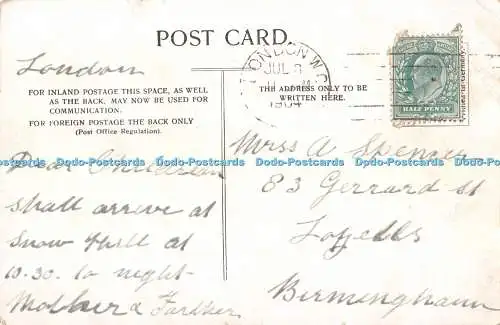 POST CARD.
London
FOR INLAND POSTAGE THIS SPACE, AS WELL
AS THE BACK, MAY NOW BE USED FOR
COMMUNICATION.
FOR FOREIGN POSTAGE THE BACK ONLY
(Post Office Regulation).
Dear Children
shall arrive at
Snow Hill at
10.30. to night
Mother & Farther
LONDON. W.C
JUL 5
1904
THE ADDRESS ONLY TO BE
WRITTEN HERE.
HALF PENNY
Printed in Germany
Miss A Spencer
83 Gerrard St
Lozells
Birmingham
Dodo-Postcards Dodo-Postcards Dodo-Postcards Dodo-Postcards Dodo-Postcards Dodo-Postcards